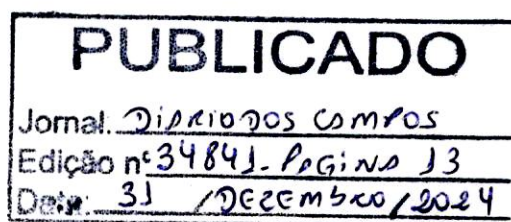 PUBLICADO
Jornal: DIARIO DOS CAMPOS
Edição nº 34841- PAGINA 13
Data: 31 / DEZEMBRO / 2024